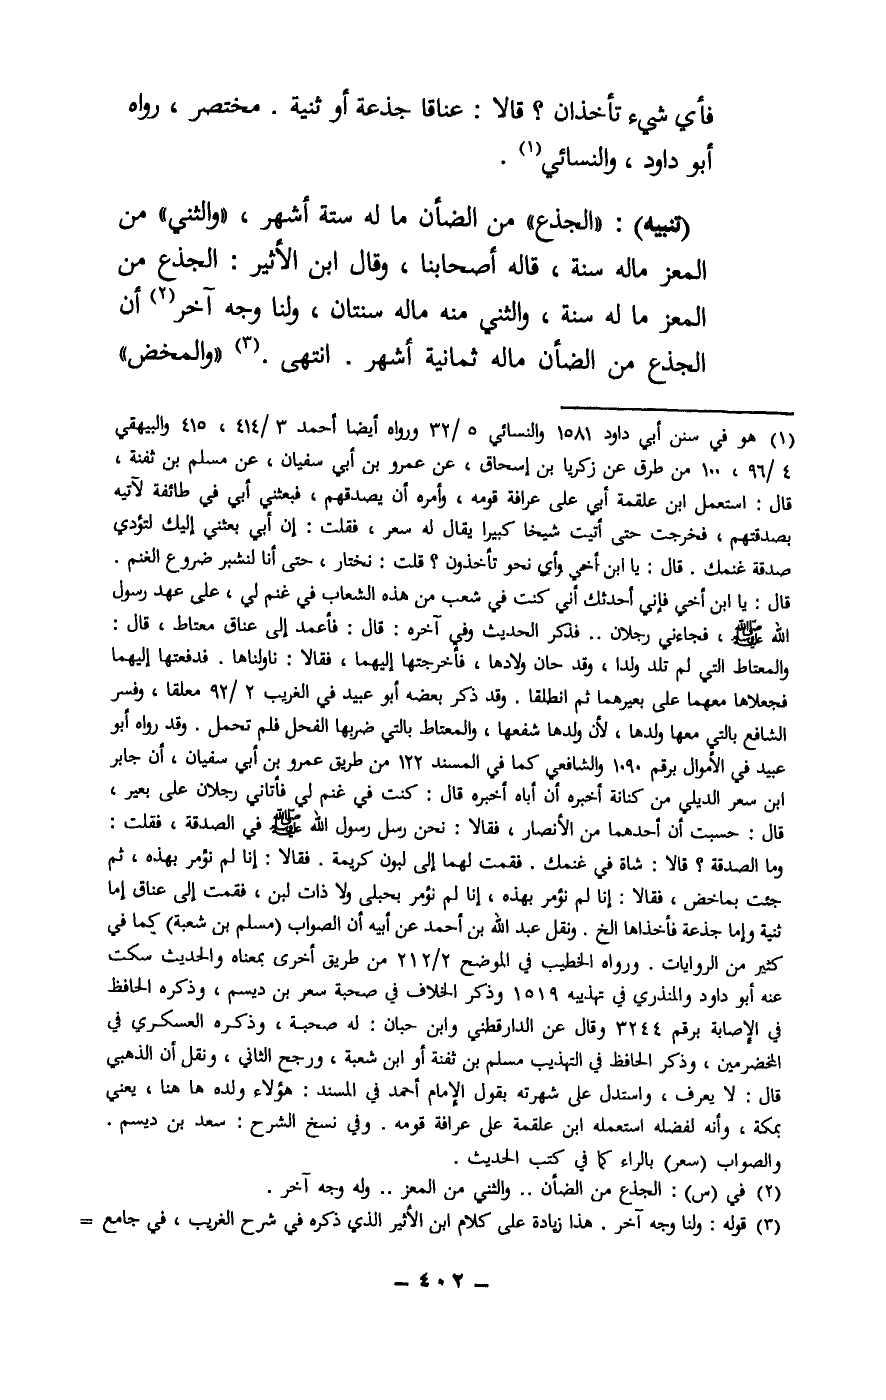 فأي شيء تأخذان ؟ قالا : عناقا جذعة أو ثنية . مختصر ، رواه
أبو داود ، والنسائي(١) .
(تنبيه) : «الجذع» من الضأن ما له ستة أشهر ، «والثني» من
المعز ماله سنة ، قاله أصحابنا ، وقال ابن الأثير : الجذع من
المعز ما له سنة ، والثني منه ماله سنتان ، ولنا وجه آخر(٢) أن
الجذع من الضأن ماله ثمانية أشهر . انتهى .(٣) «والمخض»
(١) هو في سنن أبي داود ١٥٨١ والنسائي ٥ /٣٢ ورواه أيضا أحمد ٣ /٤١٤ ، ٤١٥ والبيهقي
٤ /٩٦ ، ١٠٠ من طرق عن زكريا بن إسحاق ، عن عمرو بن أبي سفيان ، عن مسلم بن ثفنة ،
قال : استعمل ابن علقمة أبي على عرافة قومه ، وأمره أن يصدقهم ، فبعثني أبي في طائفة لآتيه
بصدقتهم ، فخرجت حتى أتيت شيخا كبيرا يقال له سعر ، فقلت : إن أبي بعثني إليك لتؤدي
صدقة غنمك . قال : يا ابن أخي وأي نحو تأخذون ؟ قلت : نختار ، حتى أنا لنشبر ضروع الغنم .
قال : يا ابن أخي فإني أحدثك أني كنت في شعب من هذه الشعاب في غنم لي ، على عهد رسول
الله ﷺ ، فجاءني رجلان .. فذكر الحديث وفي آخره : قال : فأعمد إلى عناق معتاط ، قال :
والمعتاط التي لم تلد ولدا ، وقد حان ولادها ، فأخرجتها إليهما ، فقالا : ناولناها . فدفعتها إليهما
فجعلاها معهما على بعيرهما ثم انطلقا . وقد ذكر بعضه أبو عبيد في الغريب ٢ /٩٢ معلقا ، وفسر
الشافع بالتي معها ولدها ، لأن ولدها شفعها ، والمعتاط بالتي ضربها الفحل فلم تحمل . وقد رواه أبو
عبيد في الأموال برقم ١٠٩٠ والشافعي كما في المسند ١٢٢ من طريق عمرو بن أبي سفيان ، أن جابر
ابن سعر الديلي من كنانة أخبره أن أباه أخبره قال : كنت في غنم لي فأتاني رجلان على بعير ،
قال : حسبت أن أحدهما من الأنصار ، فقالا : نحن رسل رسول الله ﷺ في الصدقة ، فقلت :
وما الصدقة ؟ قالا : شاة في غنمك . فقمت لهما إلى لبون كريمة . فقالا : إنا لم نؤمر بهذه ، ثم
جئت بماخض ، فقالا : إنا لم نؤمر بهذه ، إنا لم نؤمر بحبلى ولا ذات لبن ، فقمت إلى عناق إما
ثنية وإما جذعة فأخذاها الخ . ونقل عبد الله بن أحمد عن أبيه أن الصواب (مسلم بن شعبة) كما في
كثير من الروايات . ورواه الخطيب في الموضح ٢١٢/٢ من طريق أخرى بمعناه والحديث سكت
عنه أبو داود والمنذري في تهذيبه ١٥١٩ وذكر الخلاف في صحبة سعر بن ديسم ، وذكره الحافظ
في الإصابة برقم ٣٢٤٤ وقال عن الدارقطني وابن حبان : له صحبة ، وذكره العسكري في
المخضرمين ، وذكر الحافظ في التهذيب مسلم بن ثفنة أو ابن شعبة ، ورجح الثاني ، ونقل أن الذهبي
قال : لا يعرف ، واستدل على شهرته بقول الإمام أحمد في المسند : هؤلاء ولده ها هنا ، يعني
بمكة ، وأنه لفضله استعمله ابن علقمة على عرافة قومه . وفي نسخ الشرح : سعد بن ديسم .
والصواب (سعر) بالراء كما في كتب الحديث .
(٢) في (س) : الجذع من الضأن .. والثني من المعز .. وله وجه آخر .
(٣) قوله : ولنا وجه آخر . هذا زيادة على كلام ابن الأثير الذي ذكره في شرح الغريب ، في جامع =
– ٤٠٢ –